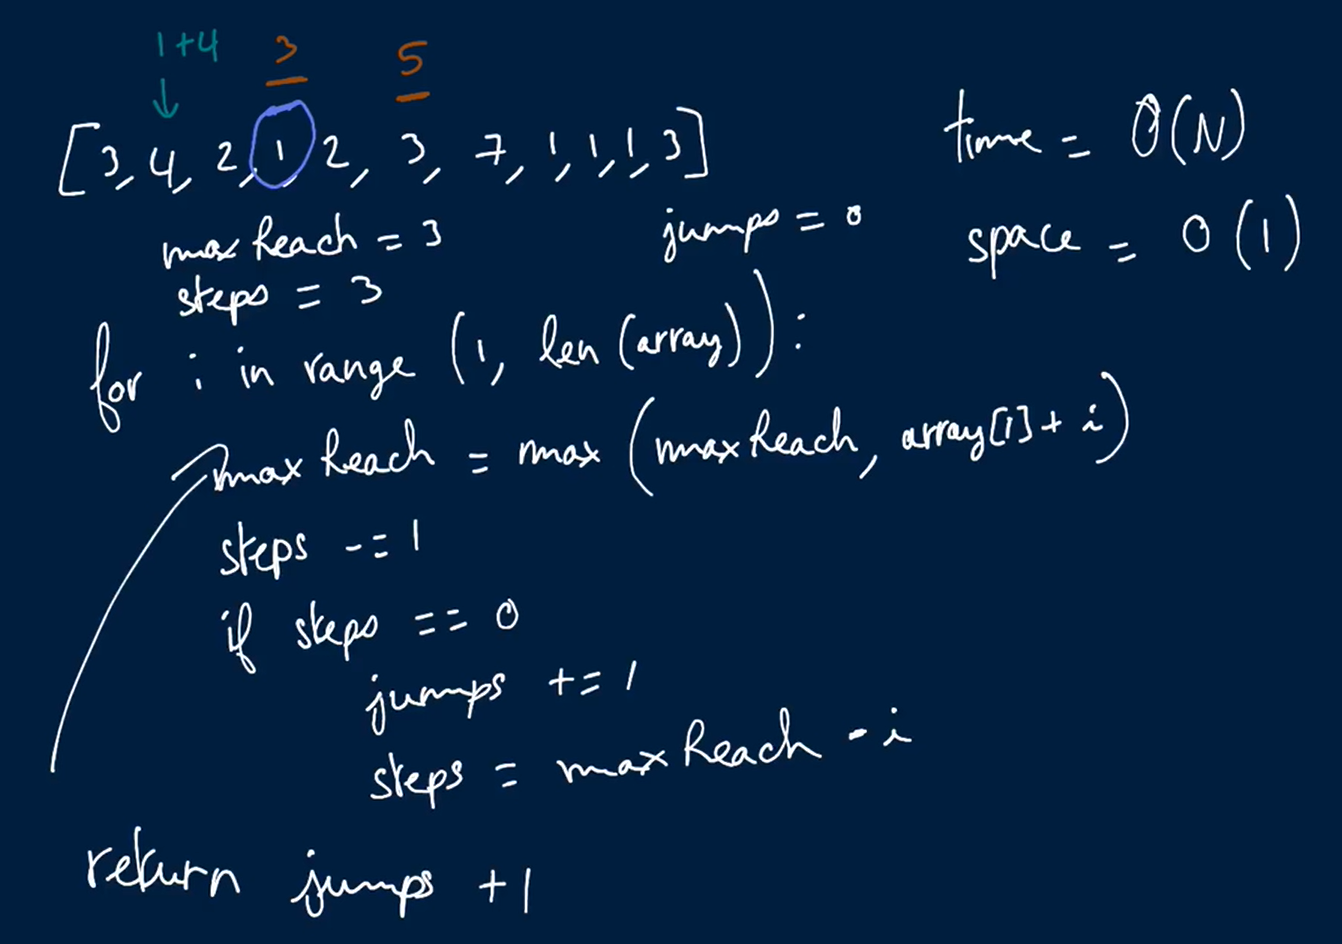 1+4 3 5
[3, 4, 2, 1, 2, 3, 7, 1, 1, 1, 3]
time = O(N)
maxReach = 3
jumps = 0
space = O(1)
steps = 3
for i in range (1, len(array)):
maxReach = max(maxReach, array[i] + i)
steps -= 1
if steps == 0
jumps += 1
steps = maxReach - i
return jumps +1